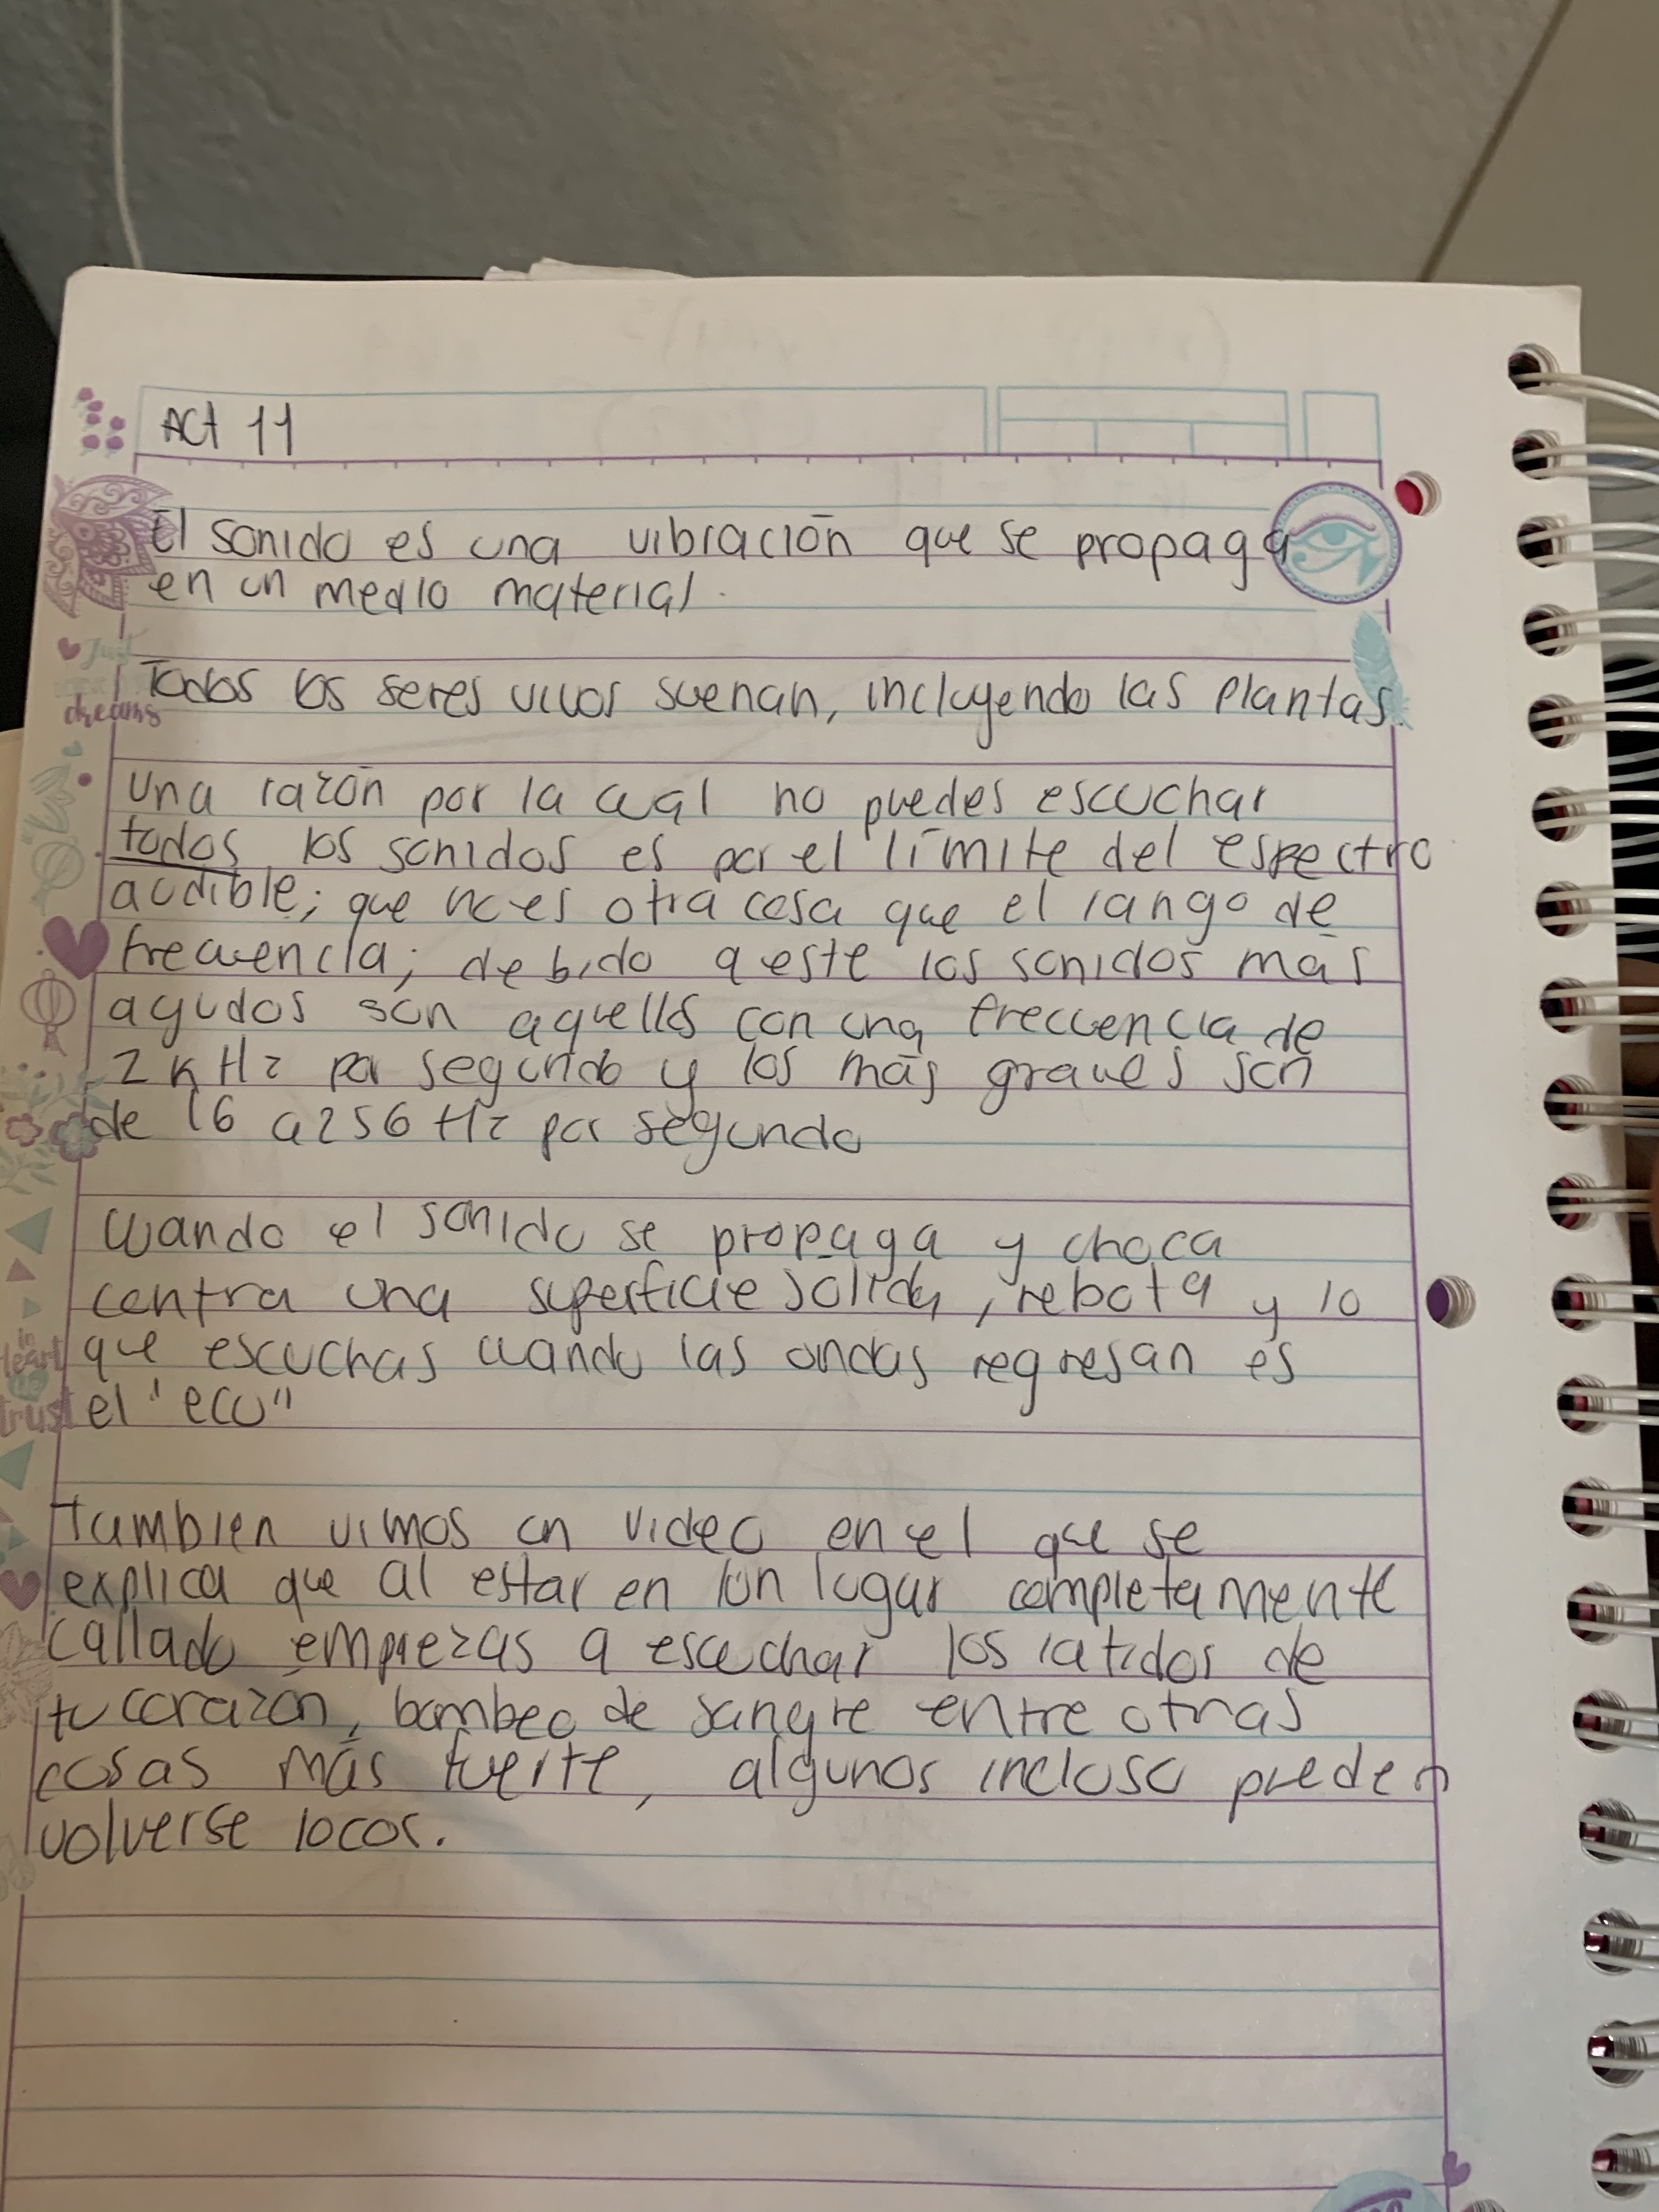 Act 11
El sonido es una vibración que se propaga
en un medio material.
Todos los seres vivos suenan, incluyendo las plantas.
Just
dreams
Una razón por la cual no puedes escuchar
todos los sonidos es por el límite del espectro
audible; que no es otra cosa que el rango de
frecuencia; debido a este los sonidos más
agudos son aquellos con una frecuencia de
2 KHz por segundo y los más graves son
de 16 a 256 Hz por segundo
Cuando el sonido se propaga y choca
contra una superficie sólida, rebota y lo
que escuchas cuando las ondas regresan es
el "eco"
in
Heart
trust
Tambien vimos un video en el que se
explica que al estar en un lugar completamente
callado empiezas a escuchar los latidos de
tu corazón, bombeo de sangre entre otras
cosas más fuerte, algunos incluso pueden
volverse locos.